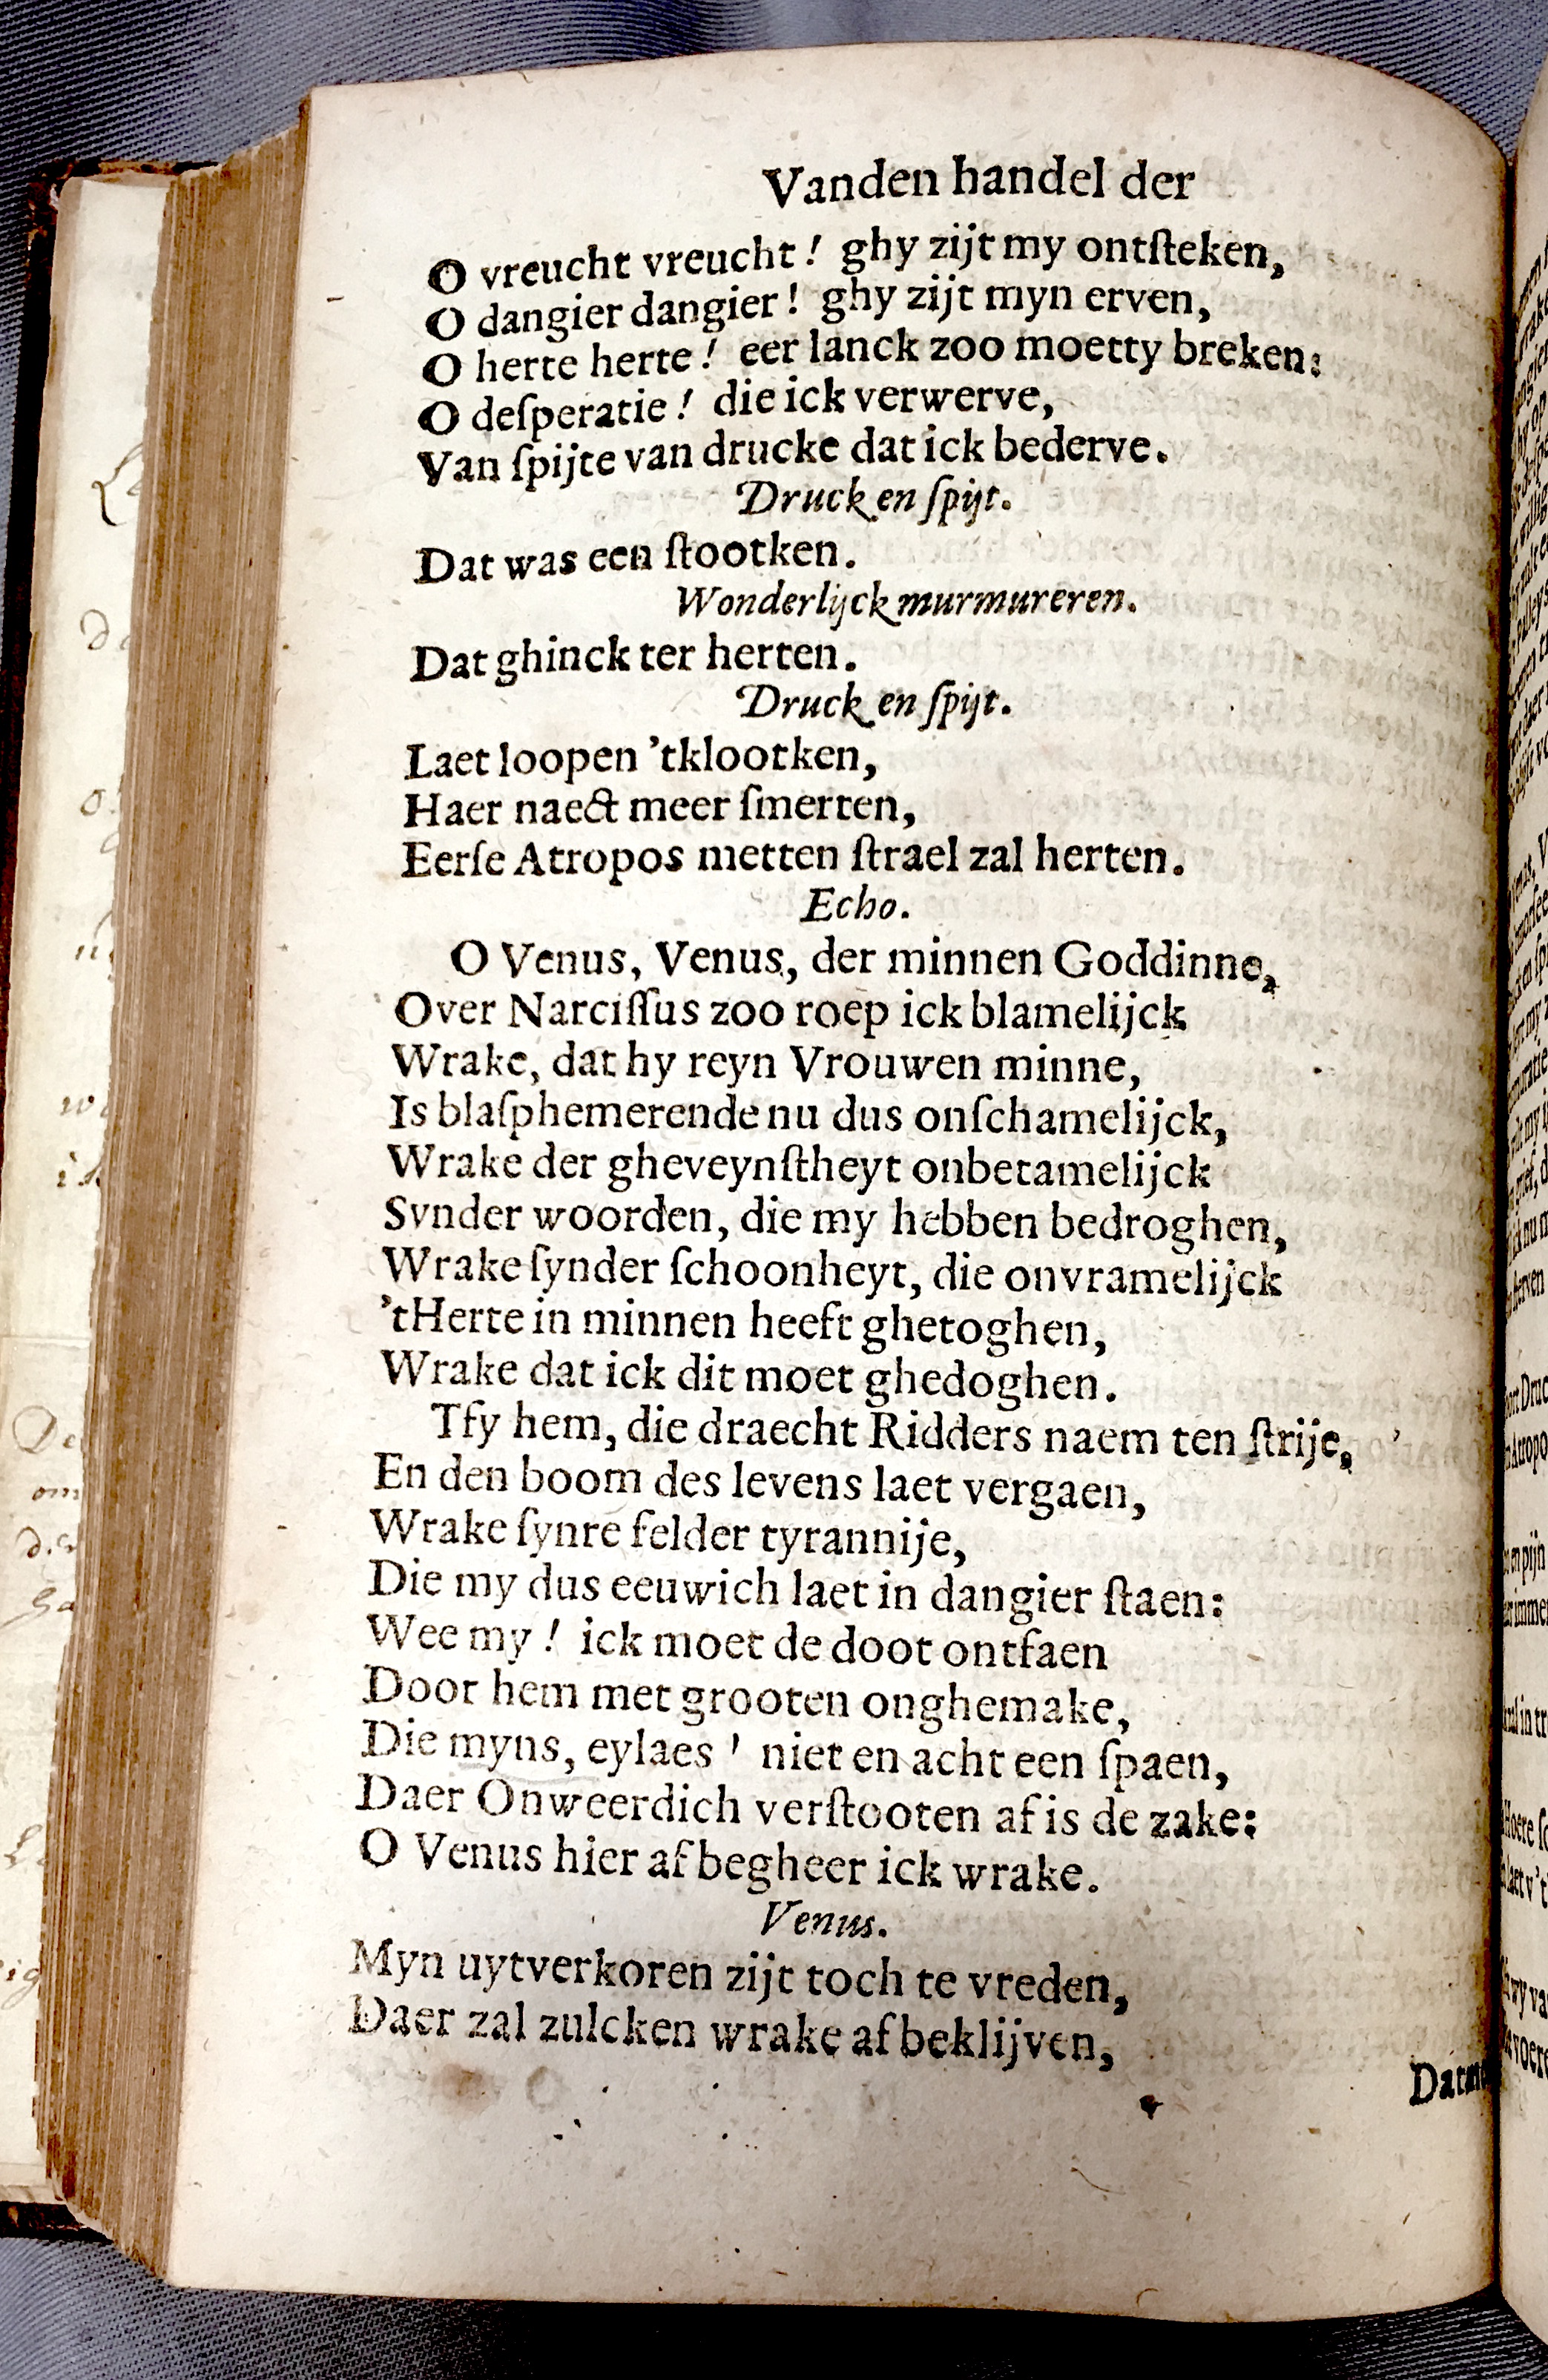 Vanden handel der
O vreucht vreucht! ghy zijt my ontſteken,
O dangier dangier! ghy zijt myn erven,
O herte herte! eer lanck zoo moetty breken:
O deſperatie! die ick verwerve,
Van ſpijte van drucke dat ick bederve.
Druck en ſpijt.
Dat was een ſtootken.
Wonderlijck murmureren.
Dat ghinck ter herten.
Druck en ſpijt.
Laet loopen 'tklootken,
Haer naect meer ſmerten,
Eerſe Atropos metten ſtrael zal herten.
Echo.
O Venus, Venus, der minnen Goddinne,
Over Narciſſus zoo roep ick blamelijck
Wrake, dat hy reyn Vrouwen minne,
Is blaſphemerende nu dus onſchamelijck,
Wrake der gheveynſtheyt onbetamelijck
Synder woorden, die my hebben bedroghen,
Wrake ſynder ſchoonheyt, die onvramelijck
'tHerte in minnen heeft ghetoghen,
Wrake dat ick dit moet ghedoghen.
Tfy hem, die draecht Ridders naem ten ſtrije,
En den boom des levens laet vergaen,
Wrake ſynre felder tyrannije,
Die my dus eeuwich laet in dangier ſtaen:
Wee my! ick moet de doot ontfaen
Door hem met grooten onghemake,
Die myns, eylaes! niet en acht een ſpaen,
Daer Onweerdich verſtooten af is de zake:
O Venus hier af begheer ick wrake.
Venus.
Myn uytverkoren zijt toch te vreden,
Daer zal zulcken wrake af beklijven,